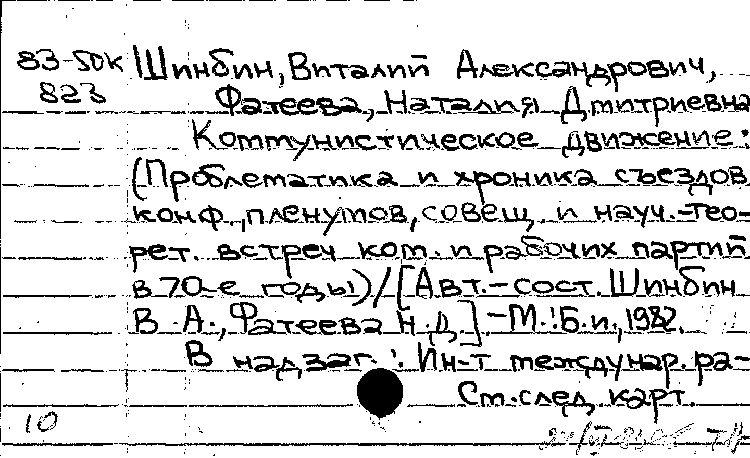 83-50к Шинбин, Виталий Александрович,
823 Фатеева, Наталия Дмитриевна
Коммунистическое движение:
(Проблематика и хроника съездов
конф., пленумов, совещ. и науч.-тео-
рет. встреч ком. и рабочих партий
в 70-е годы)/[Авт.-сост. Шинбин
В.А., Фатеева Н.Д.]-М.:Б.и., 1982.
В надзаг.: Ин-т междунар. ра-
См. след. карт.
10